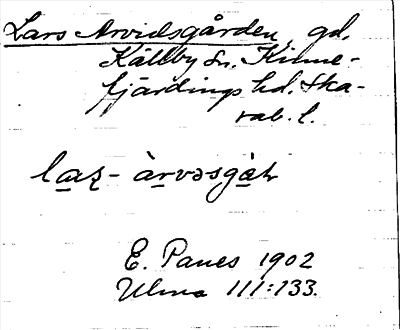 Lars Arvidsgården, gd.
Källby sn. Kinne-
fjärdings hd. Ska-
rab. l.
la̱ʂ- àrvəsgà̱ɳ
E. Panes 1902
Ulma 111:133.